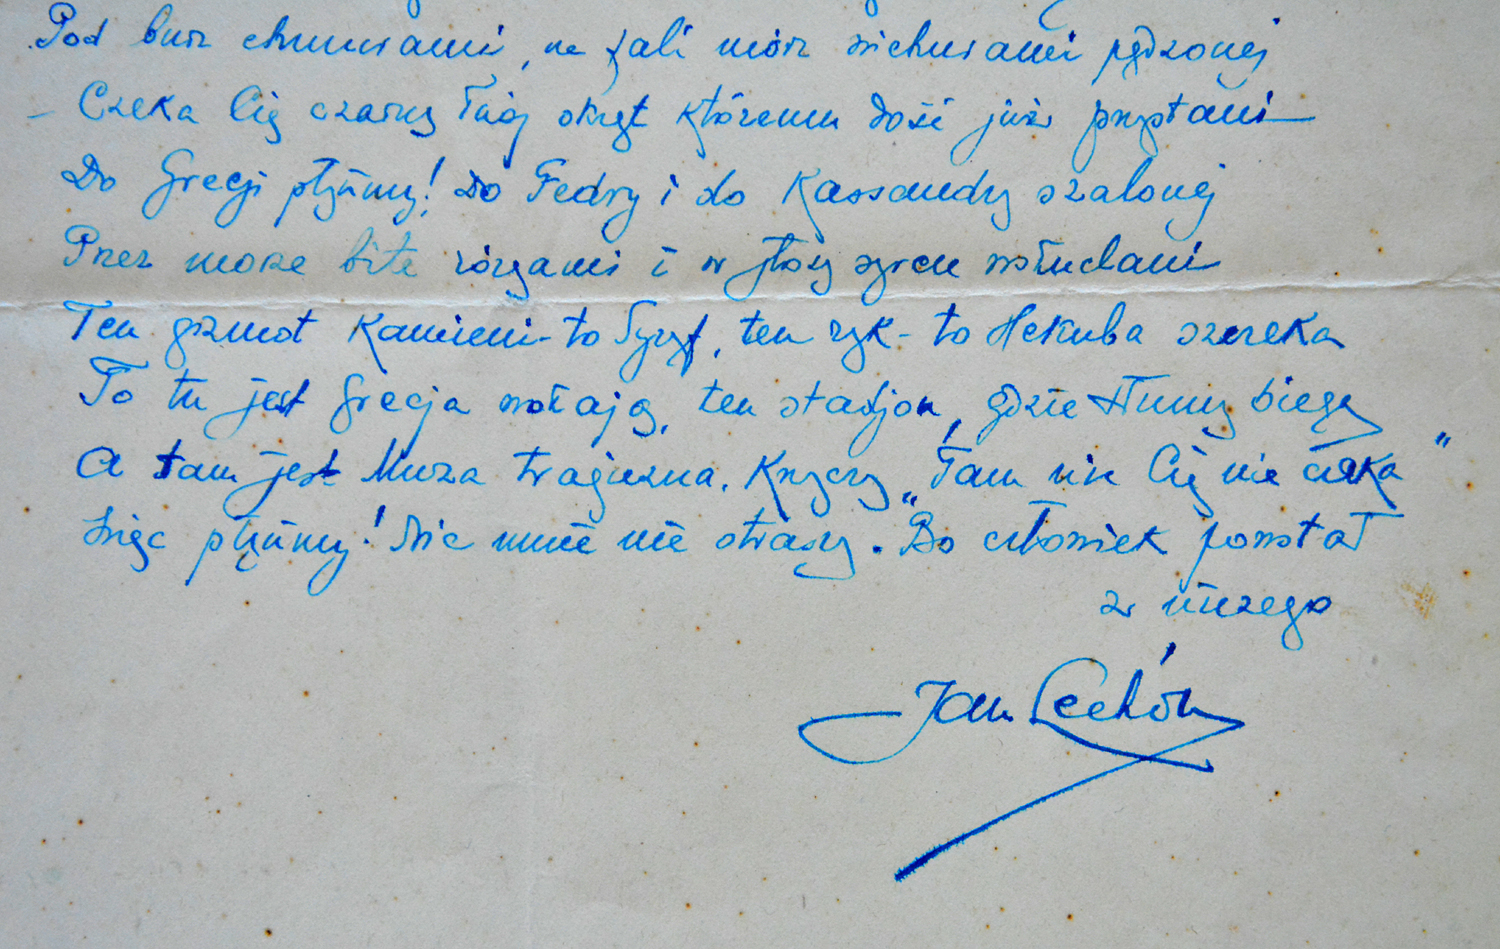 Pod burz chmurami, na fali mórz wichurami pędzonej
- Czeka Cię czarny Twój okręt któremu dość już przystani
Do Grecji płyńmy! Do Fedry i do Kassandry szalonej
Przez morze bite rózgami i w głosy syren wsłuchani
Ten grzmot kamieni - to Syzyf, ten ryk - to Hekuba szczeka
To tu jest Grecja wołają, ten stadjon, gdzie tłumy biegą
A tam jest Muza tragiczna. Krzyczy „Tam nic Cię nie czeka"
Więc płyńmy! Nic mnie nie straszy. Bo człowiek powstał
z niczego
Jan Lechoń